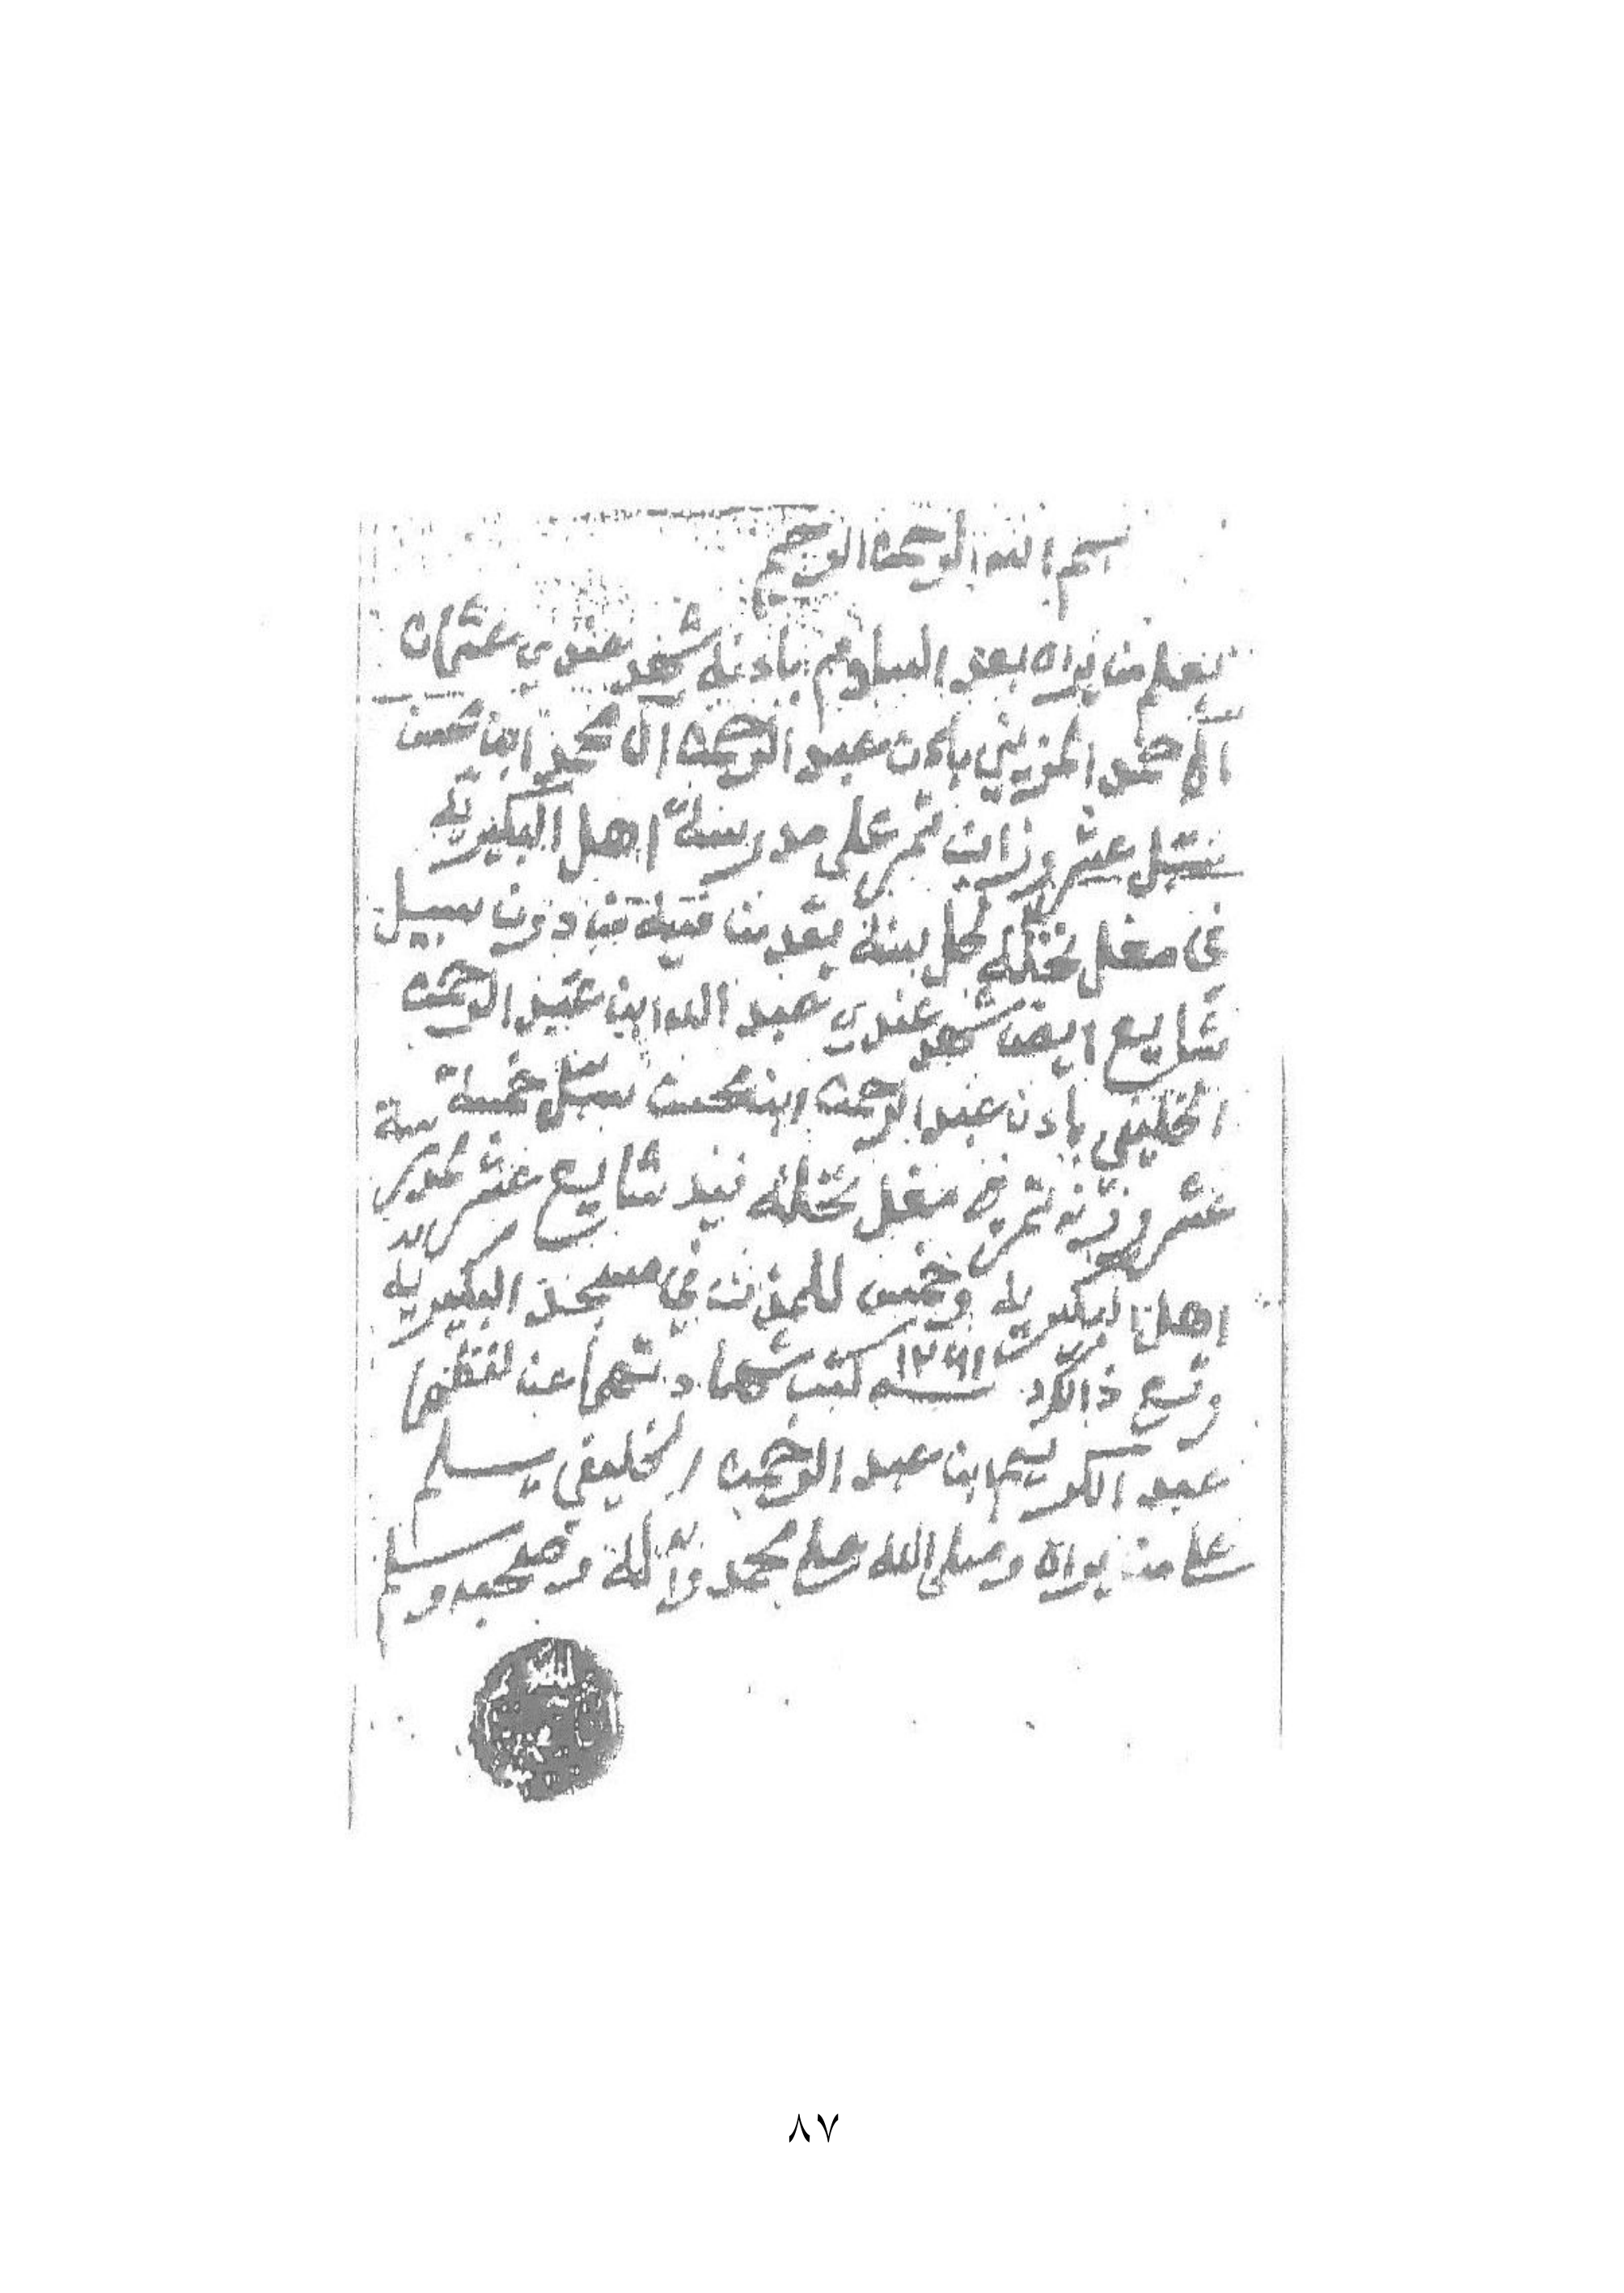 بسم الله الرحمن الرحيم
يعلم من يراه بعد السلام بادنه شهد عندي عثمان
آل احمد المزيني بان عبد الرحمن آل محمد ابن محسن
سبل عشر وزان تمر على مدرسة اهل البكيريه
في مغل نخله لكل سنة دون سبيل
شايع ايضا شهد عندي عبد الله ابن عبد الرحمن
الخليفي بان عبد الرحمن ابن محسن سبل خمسة
عشر وزنه تمر في مغل نخله شايع عشر لمدرسة
اهل البكيريه وخمس للمذن في مسجد البكيريه
وقع ذالك سنه ١٢٦١ كتب شهادتهما عن لفظهما
عبد الكريم ابن عبد الرحمن الخليفي يسلم
على من يراه وصلى الله على محمد وآله وصحبه وسلم
٨٧